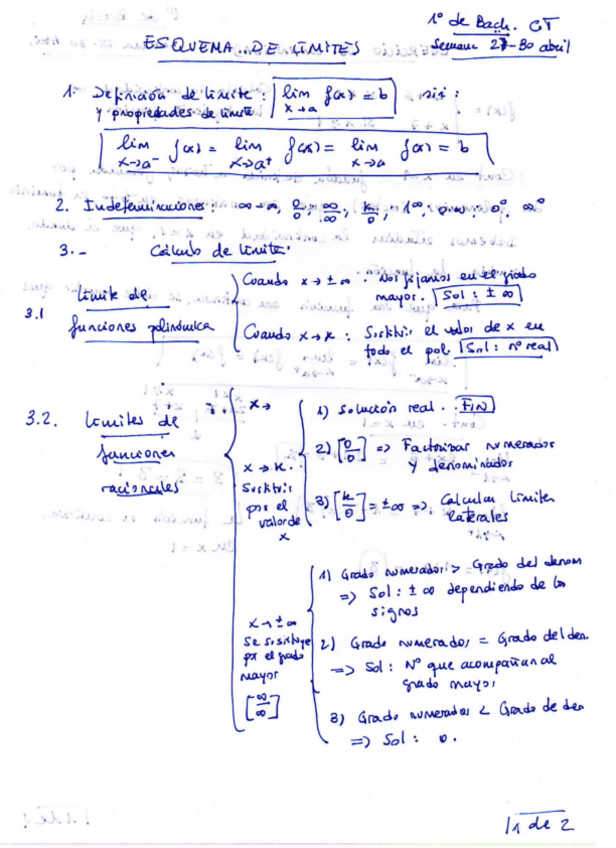 1º de Bach. CT
ESQUEMA DE LÍMITES
Semana 27-30 abril
1. Definición de límite : lim f(x) = b sii :
x→a
y propiedades de límite
lim f(x) = lim f(x) = lim f(x) = b
x→a⁻ x→a⁺ x→a
2. Indeterminaciones : ∞-∞, 0/0, ∞/∞, k/0, 1^∞, 0·∞, 0⁰, ∞⁰
3.- Cálculo de límite.
3.1 Límite de
funciones polinómica
Cuando x→±∞ : Nos fijamos en el grado
mayor. Sol : ± ∞
Cuando x→k : Sustituir el valor de x en
todo el pol. Sol : nº real
3.2. Límites de
funciones
racionales
x→
x→k.
Sustituir
por el
valor de
x
1) Solución real. FIN
2) [0/0] => Factorizar numerador
y denominador
3) [k/0] = ±∞ => Calcular límites
laterales
x→±∞
Se sustituye
por el grado
mayor
[∞/∞]
1) Grado numerador > Grado del denom
=> Sol : ± ∞ dependiendo de los
signos
2) Grado numerador = Grado del den.
=> Sol : Nº que acompañan al
grado mayor
3) Grado numerador < Grado de den
=> Sol : 0.
1 de 2